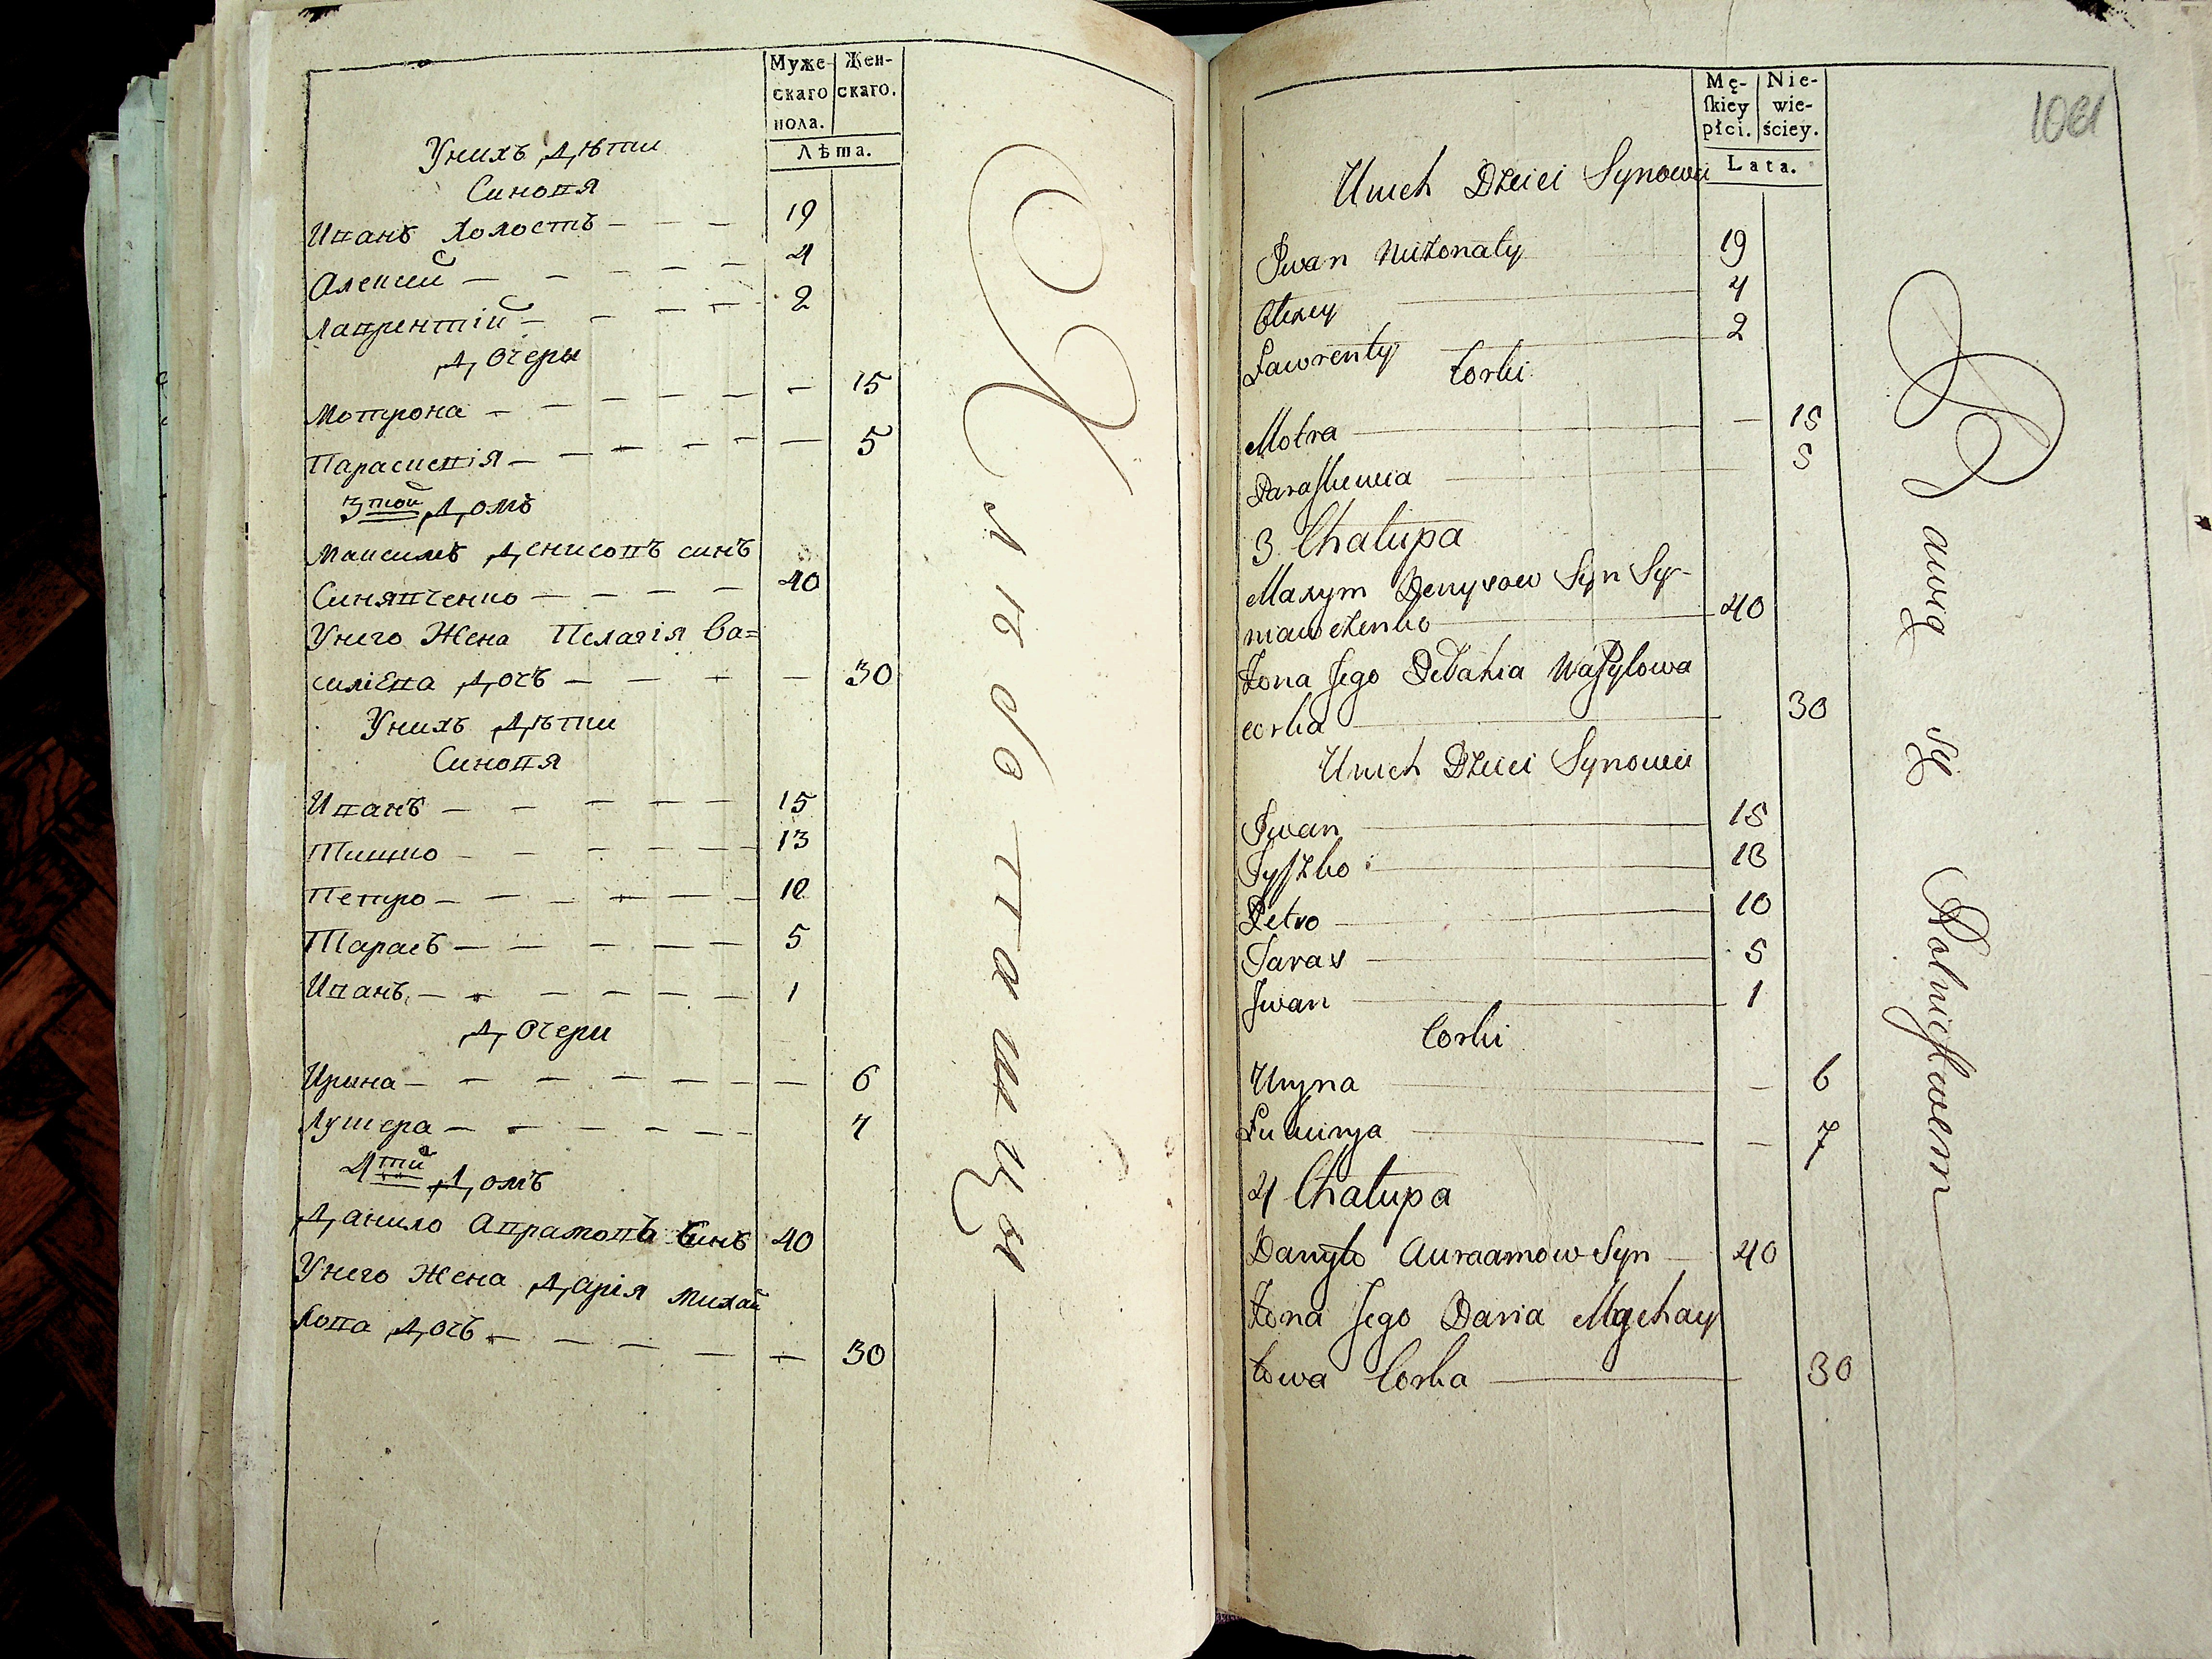 Муже-
скаго
пола.
Жен-
скаго.
Лѣта.
Унихъ дѣти
Синовя
Иванъ холостъ 19
Алексий 4
Лаврентій 2
дочеры
Мотрона — 15
Параскевія — 5
3той домъ
Максимъ денисовъ синъ
Синявченко 40
Унего Жена Пелагія Ва=
силіева дочъ — 30
Унихъ дѣти
Синовя
Иванъ 15
Тишко 13
Петро 10
Тарасъ 5
Иванъ 1
дочери
Ирина — 6
Лукера 7
4тій домъ
данило Аврамовъ синъ 40
Унего Жена дарія михай
лова дочъ — 30
Хлѣбопашцы
Mę-
ſkiey
płci.
Nie-
wie-
ściey.
Lata.
Unich Dzieci Synowie
Jwan Nieżonaty 19
Olexey 4
Ławrenty 2
Corki
Motra — 15
Paraſkiewia 5
3 Chałupa
Maxym Denysow Syn Sy-
niawczenko 40
Żona Jego Pełahia Waſylowa
corka 30
Unich Dzieci Synowie
Jwan 15
Tyſzko 13
Petro 10
Taras 5
Jwan 1
Corki
Uryna — 6
Łukirya — 7
4 Chałupa
Danyło Auraamow Syn 40
Żona Jego Daria Mychay
łowa Corka 30
Bawią się Rolnictwem